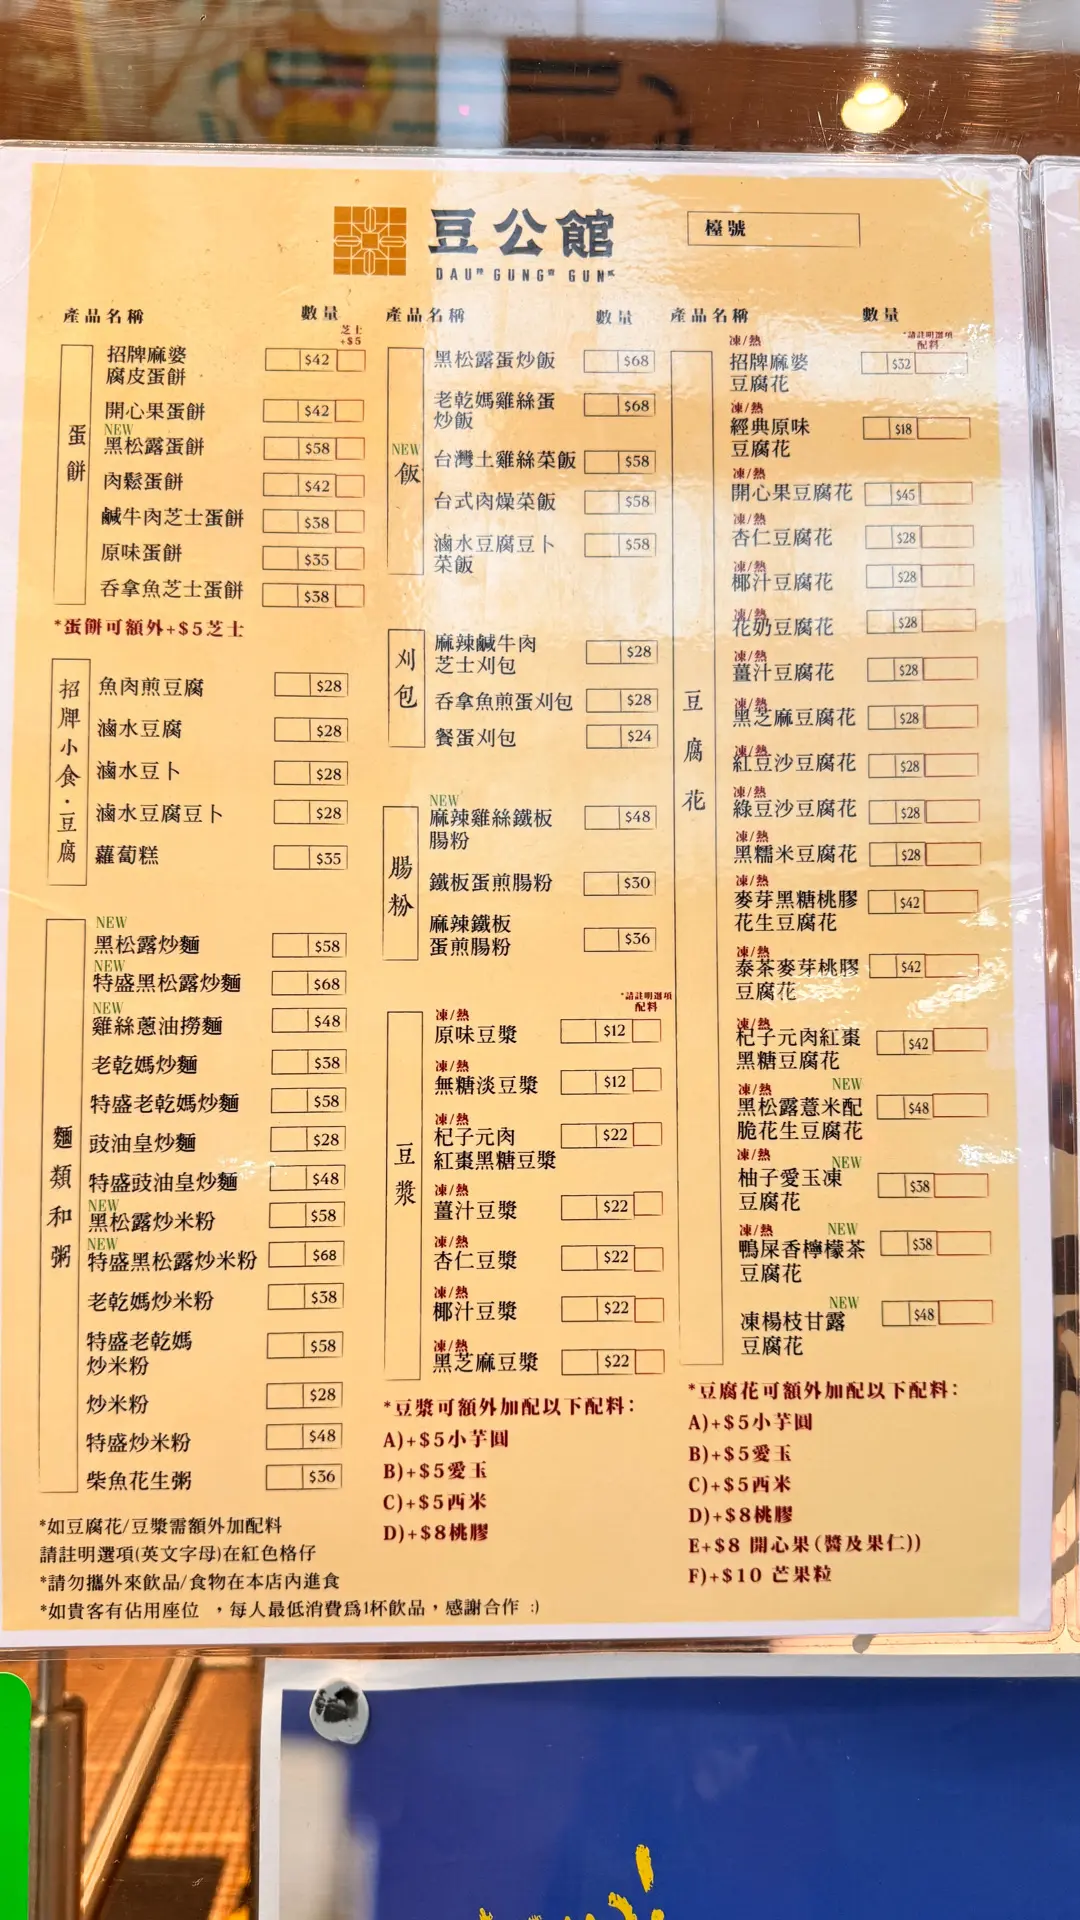 豆公館
DAU GUNG GUN
檯號
產品名稱 數量
芝士
+$5
蛋餅
招牌麻婆
腐皮蛋餅 $42
開心果蛋餅 $42
NEW
黑松露蛋餅 $58
肉鬆蛋餅 $42
鹹牛肉芝士蛋餅 $38
原味蛋餅 $35
吞拿魚芝士蛋餅 $38
*蛋餅可額外+$5芝士
招牌小食·豆腐
魚肉煎豆腐 $28
滷水豆腐 $28
滷水豆卜 $28
滷水豆腐豆卜 $28
蘿蔔糕 $35
麵類和粥
NEW
黑松露炒麵 $58
NEW
特盛黑松露炒麵 $68
NEW
雞絲蔥油撈麵 $48
老乾媽炒麵 $38
特盛老乾媽炒麵 $58
豉油皇炒麵 $28
特盛豉油皇炒麵 $48
NEW
黑松露炒米粉 $58
NEW
特盛黑松露炒米粉 $68
老乾媽炒米粉 $38
特盛老乾媽
炒米粉 $58
炒米粉 $28
特盛炒米粉 $48
柴魚花生粥 $36
*如豆腐花/豆漿需額外加配料
請註明選項(英文字母)在紅色格仔
*請勿攜外來飲品/食物在本店內進食
*如貴客有佔用座位 ，每人最低消費為1杯飲品，感謝合作 :)
產品名稱 數量
NEW
飯
黑松露蛋炒飯 $68
老乾媽雞絲蛋
炒飯 $68
台灣土雞絲菜飯 $58
台式肉燥菜飯 $58
滷水豆腐豆卜
菜飯 $58
刈包
麻辣鹹牛肉
芝士刈包 $28
吞拿魚煎蛋刈包 $28
餐蛋刈包 $24
腸粉
NEW
麻辣雞絲鐵板
腸粉 $48
鐵板蛋煎腸粉 $30
麻辣鐵板
蛋煎腸粉 $36
*請註明選項
配料
豆漿
凍/熱
原味豆漿 $12
凍/熱
無糖淡豆漿 $12
凍/熱
杞子元肉
紅棗黑糖豆漿 $22
凍/熱
薑汁豆漿 $22
凍/熱
杏仁豆漿 $22
凍/熱
椰汁豆漿 $22
凍/熱
黑芝麻豆漿 $22
*豆漿可額外加配以下配料：
A)+$5小芋圓
B)+$5愛玉
C)+$5西米
D)+$8桃膠
產品名稱 數量
*請註明選項
配料
豆腐花
凍/熱
招牌麻婆
豆腐花 $32
凍/熱
經典原味
豆腐花 $18
凍/熱
開心果豆腐花 $45
凍/熱
杏仁豆腐花 $28
凍/熱
椰汁豆腐花 $28
凍/熱
花奶豆腐花 $28
凍/熱
薑汁豆腐花 $28
凍/熱
黑芝麻豆腐花 $28
凍/熱
紅豆沙豆腐花 $28
凍/熱
綠豆沙豆腐花 $28
凍/熱
黑糯米豆腐花 $28
凍/熱
麥芽黑糖桃膠
花生豆腐花 $42
凍/熱
泰茶麥芽桃膠
豆腐花 $42
凍/熱
杞子元肉紅棗
黑糖豆腐花 $42
凍/熱 NEW
黑松露薏米配
脆花生豆腐花 $48
凍/熱 NEW
柚子愛玉凍
豆腐花 $38
凍/熱 NEW
鴨屎香檸檬茶
豆腐花 $38
NEW
凍楊枝甘露
豆腐花 $48
*豆腐花可額外加配以下配料：
A)+$5小芋圓
B)+$5愛玉
C)+$5西米
D)+$8桃膠
E+$8 開心果(醬及果仁))
F)+$10 芒果粒